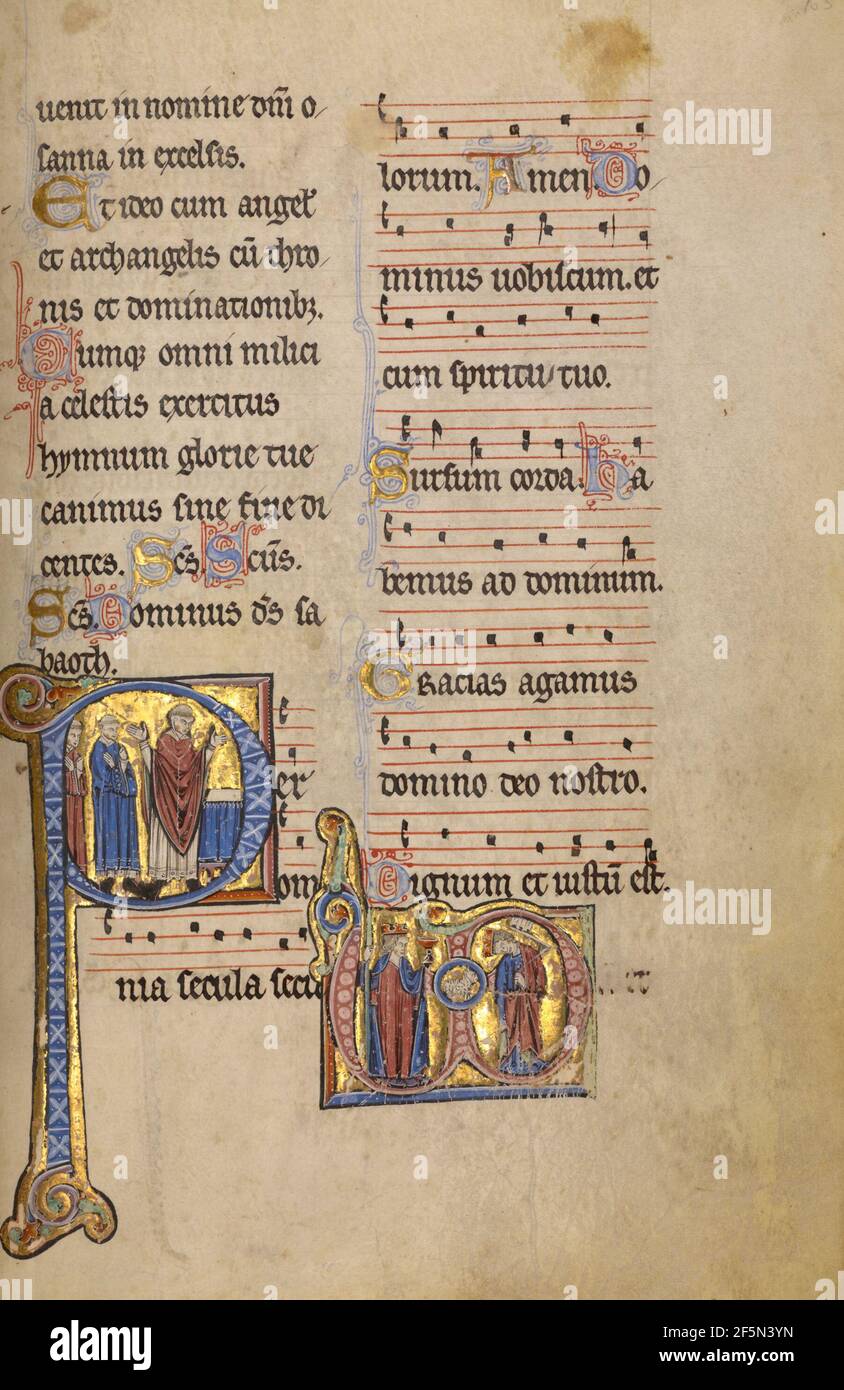 uenit in nomine dñi o-
sanna in excelsis.
Et ideo cum angel'
et archangelis cū thro-
nis et dominationibꝫ.
Cumqꝫ omni milici
a celestis exercitus
hymnum glorie tue
canimus sine fine di
centes. Scs. Scūs.
Scs. Dominus ds sa
baoth.
Per
om
nia secula secu
lorum. Amen. Do-
minus uobiscum. et
cum spiritu tuo.
Sursum corda. ha
bemus ad dominum.
Gracias agamus
domino deo nostro.
Dignum et iustū est.
a alamy stock photo
alamy
Image ID: 2F5N3YN
www.alamy.com